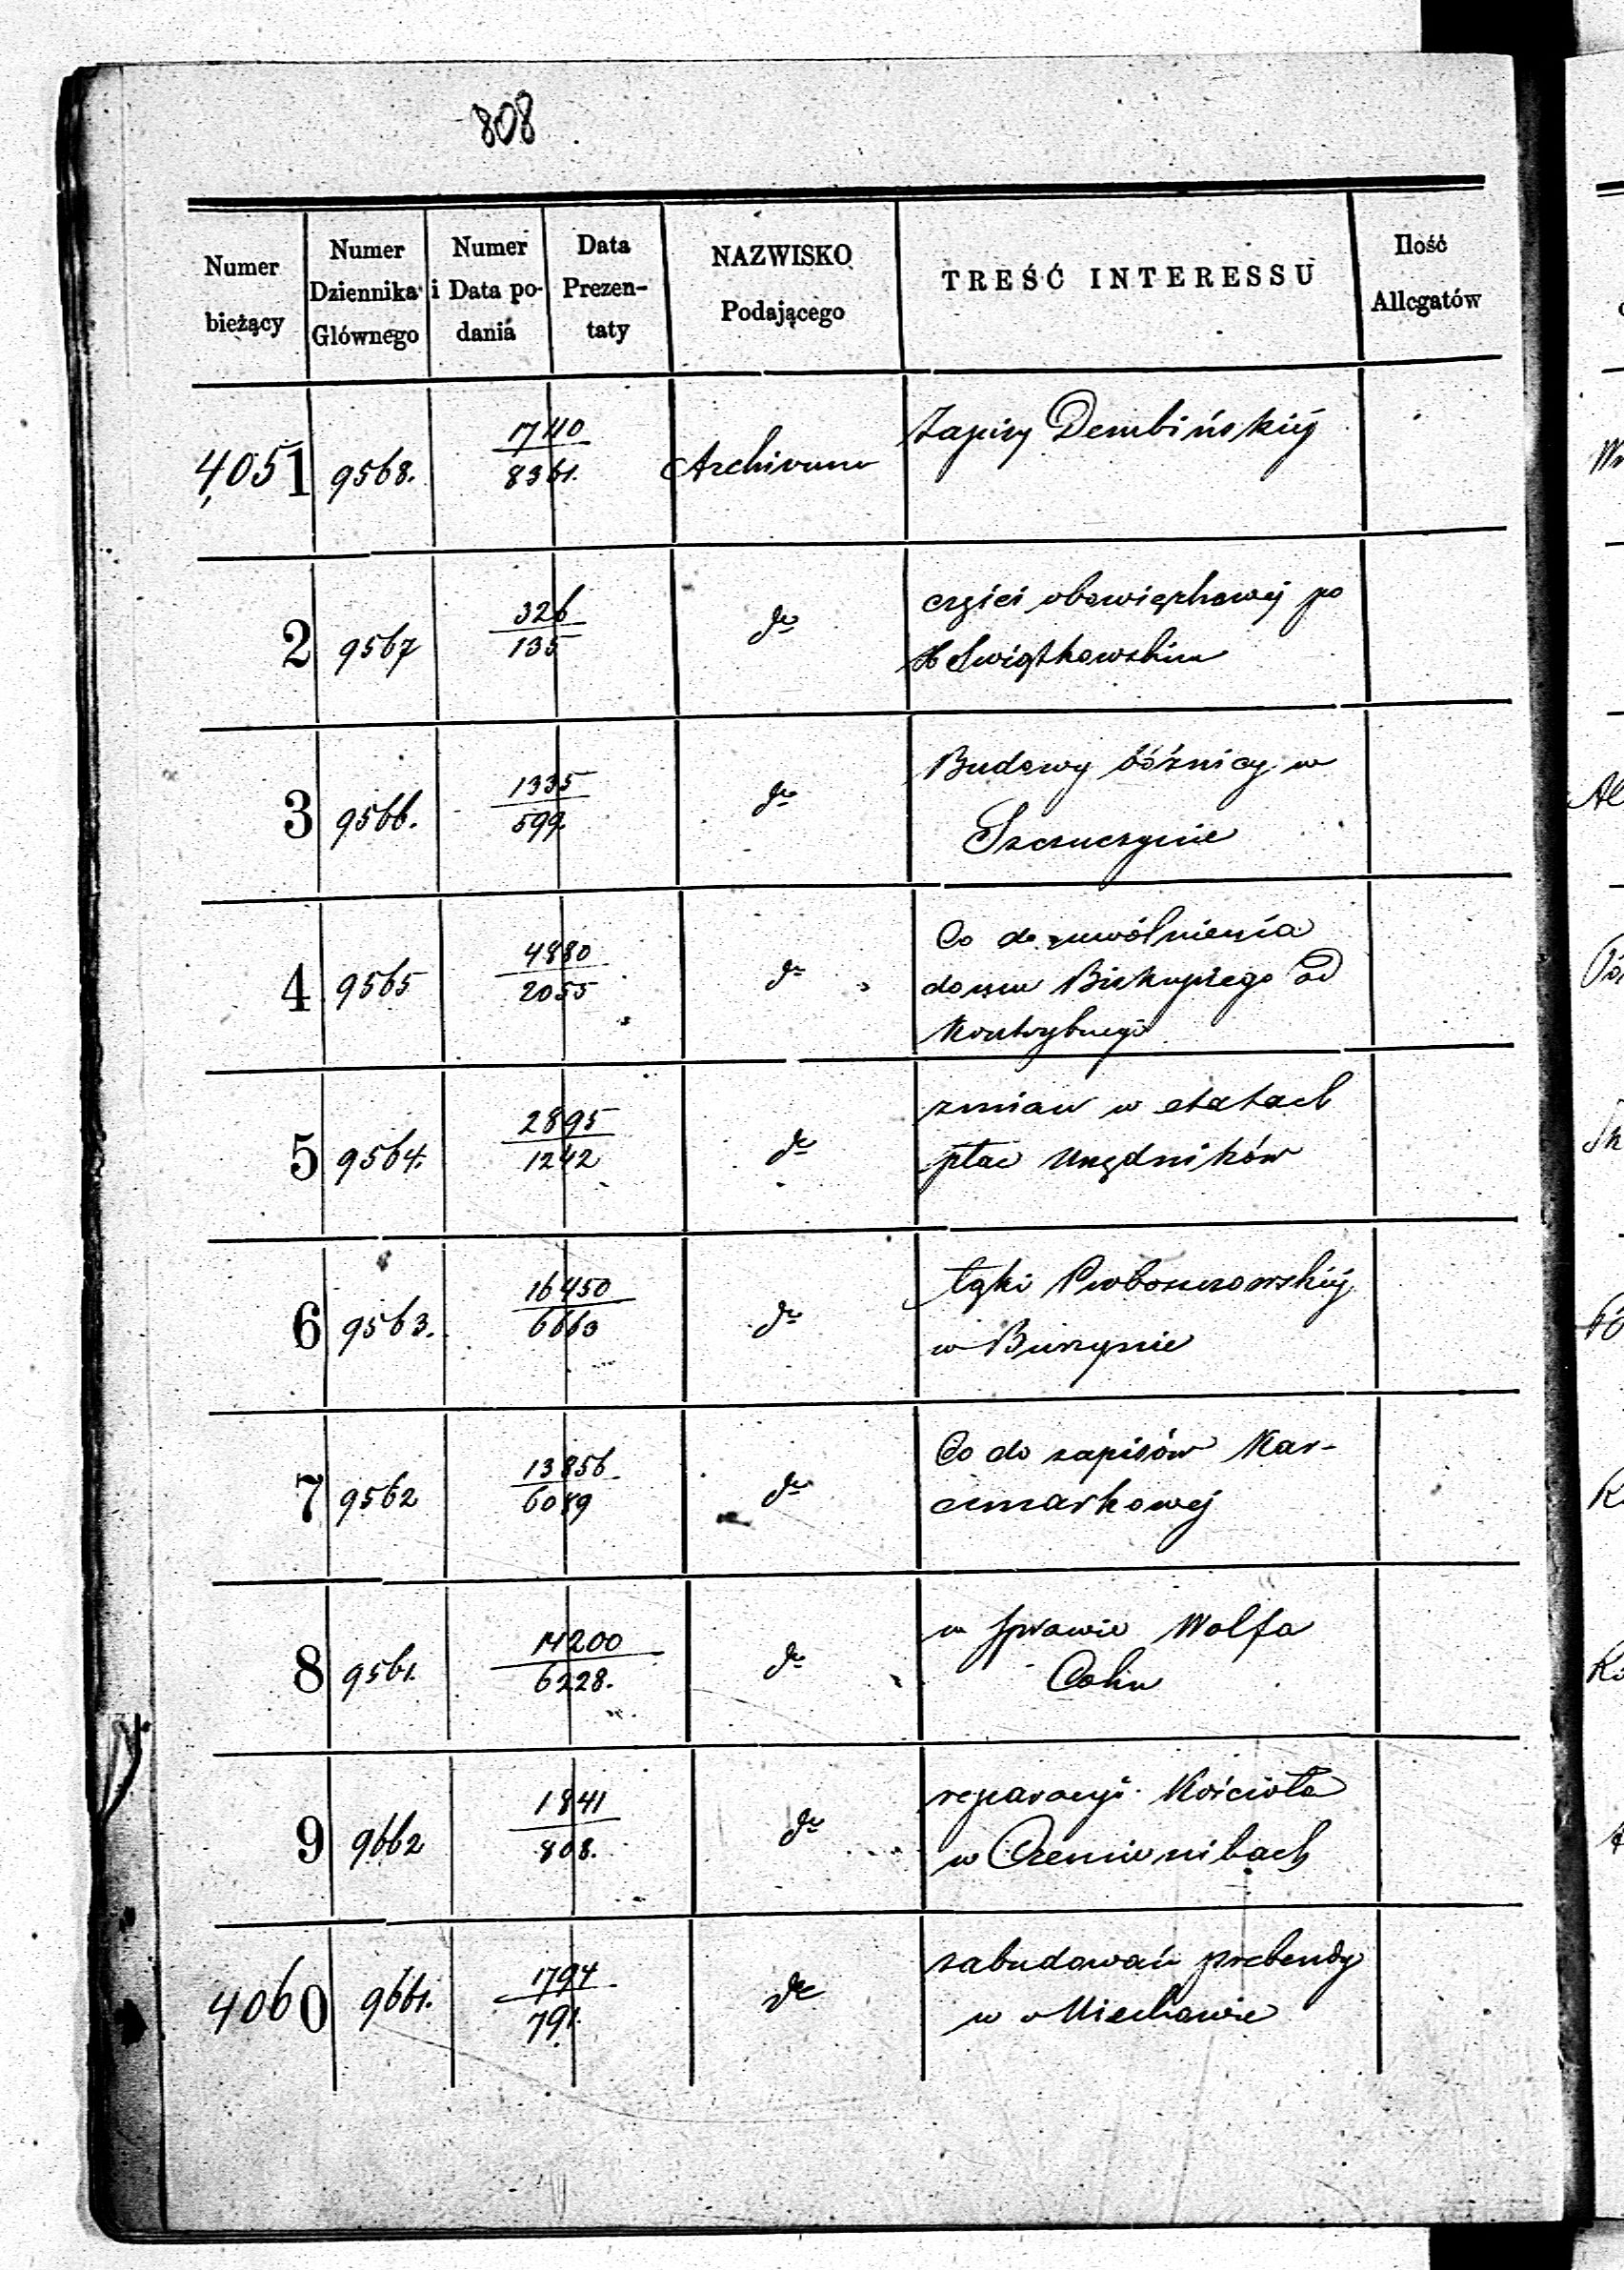 808
Numer bieżący
Numer Dziennika Głównego
Numer i Data podania
Data Prezentaty
NAZWISKO Podającego
TREŚĆ INTERESSU
Ilość Allegatów
4,051 9568. 1740/8361. Archivum Zapisy Dembińskiéj
2 9567 326/135 do części obowiązkowej po
X Swiątkowskim
3 9566. 1335/599. do Budowy bóźnicy w
Szczuczynie
4 9565 4880/2055 do Co do uwólnienia
domu Biskupiego od
Kontrybucyi
5 9564. 2895/1242 do zmian w etatach
płac Urzędników
6 9563. 16450/6663 do łąki Proboszczowskiéj
w Burzynie
7 9562 13856/6089 do Co do zapisów Kar-
czmarkowej
8 9561. 14200/6228. do w sprawie Wolfa
Cohn
9 9662 1841/808. do reparacyi Kościoła
w
4060 9661. 1794/791. do zabudowań prebendy
w Miechowie